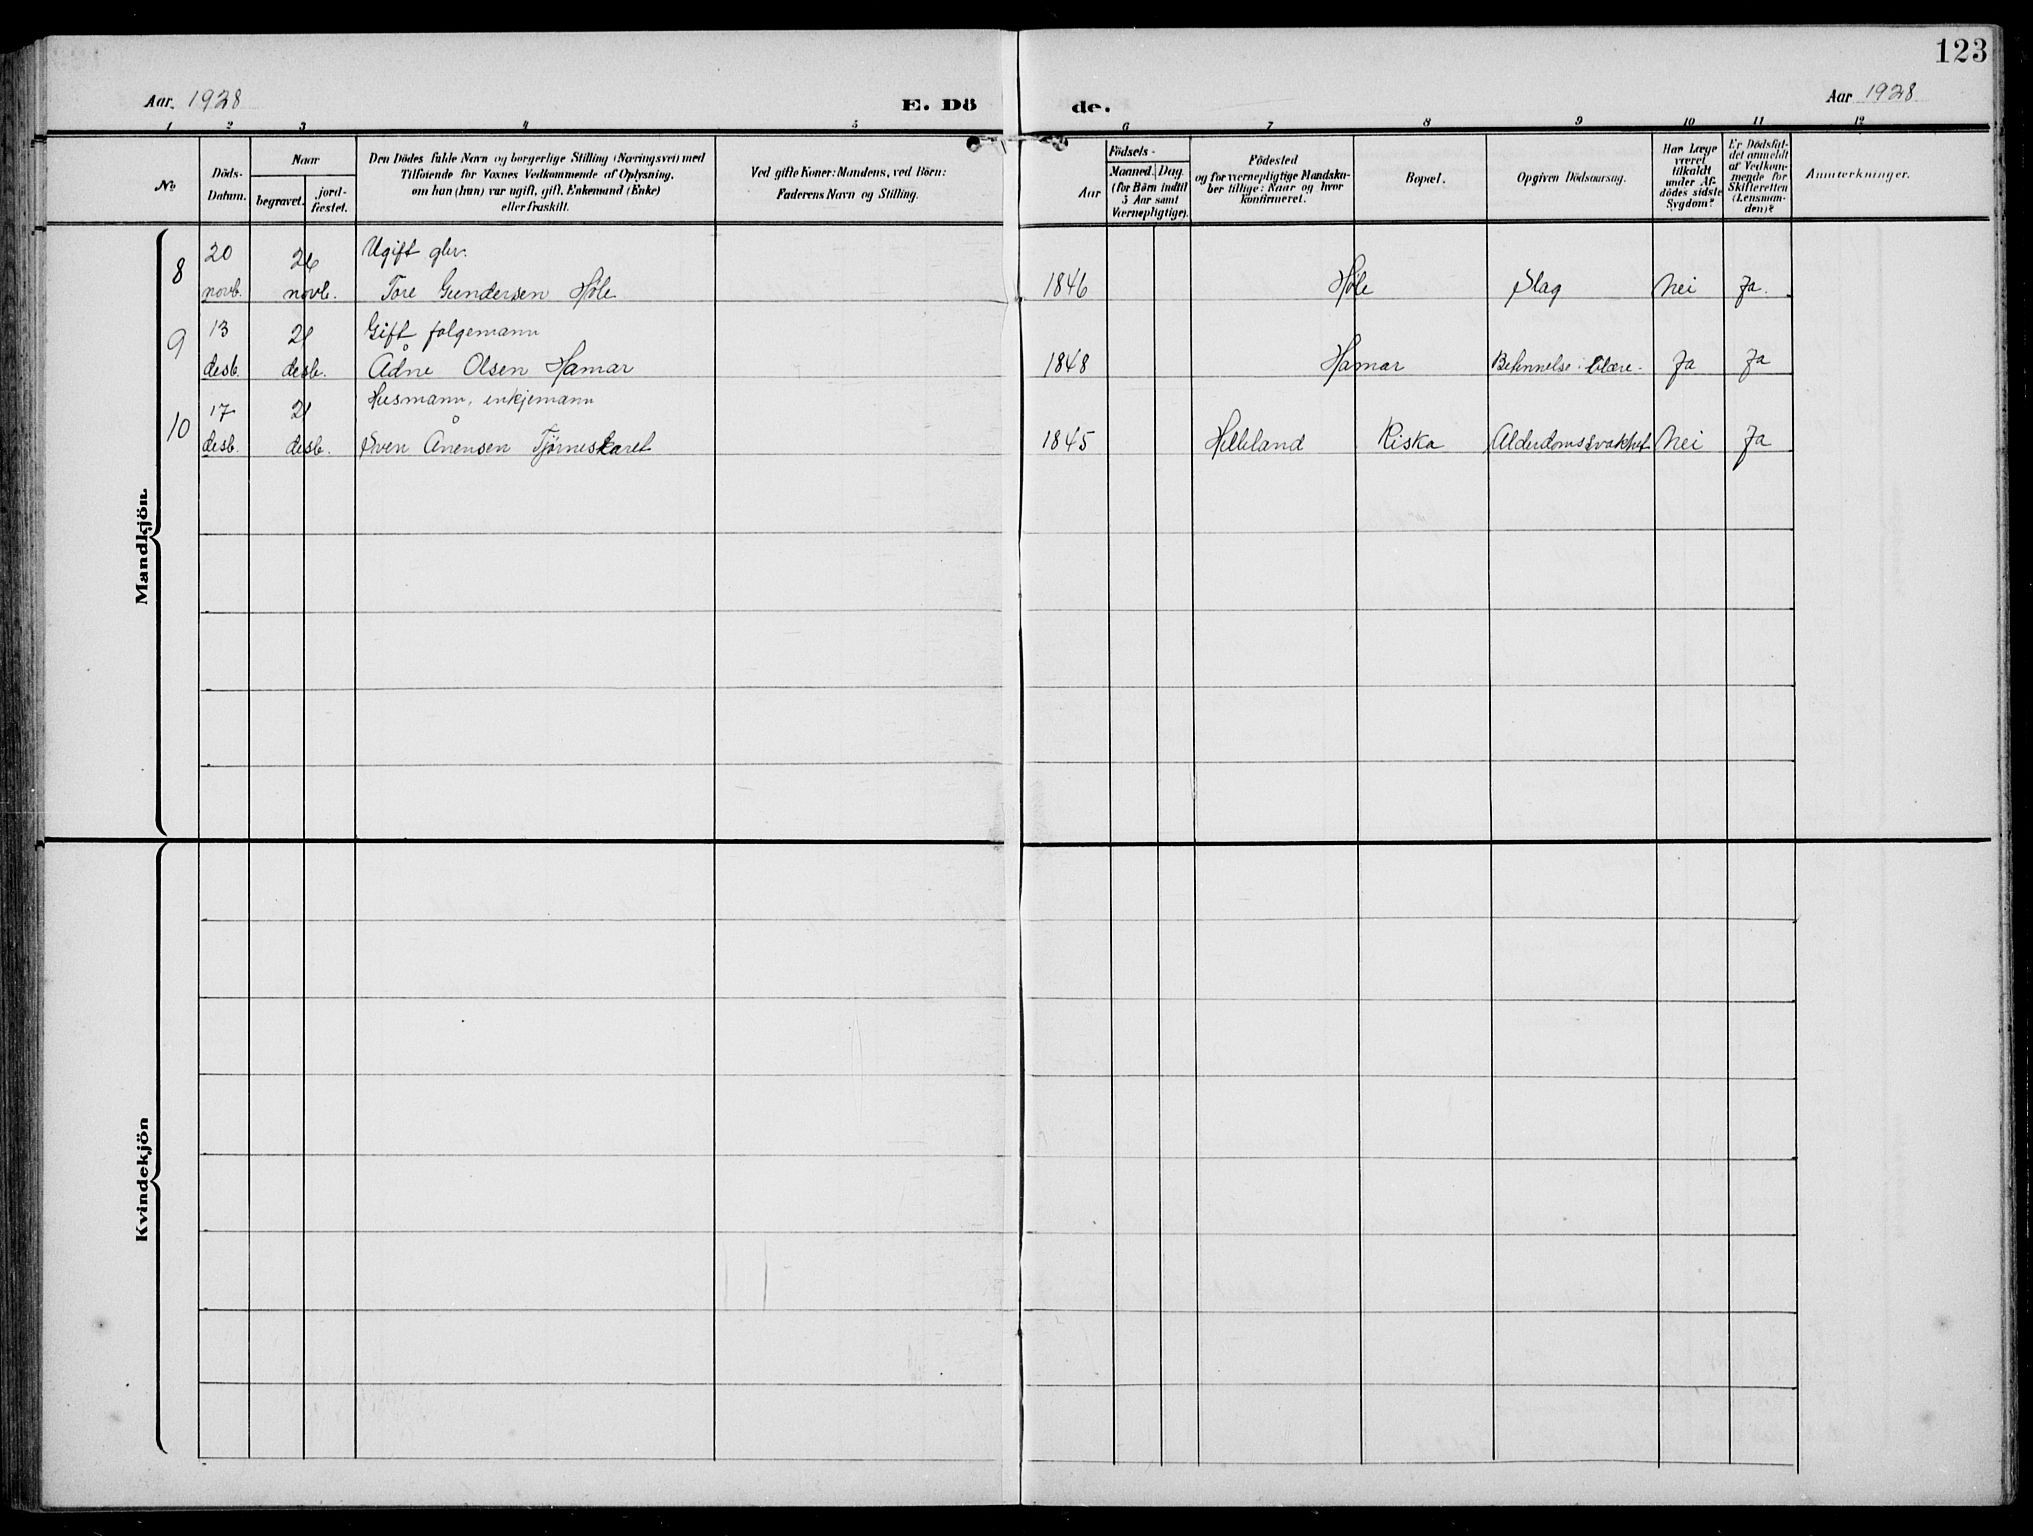 123
Aar. 1928
E. Dö
de.
Aar 1928
1 2 3 4 5 6 7 8 9 10 11 12
No
Döds-
Datum.
Naar
begravet.
jord-
fæstet.
Den Dödes fulde Navn og borgerlige Stilling (Næringsvei) med
Tilföiende for Voxnes Vedkommende af Oplysning,
om han (hun) var ugift, gift, Enkemand (Enke)
eller fraskilt.
Ved gifte Koner: Mandens, ved Börn:
Faderens Navn og Stilling.
Födsels-
Aar
Maaned. Dag.
(for Börn indtil
5 Aar samt
Værnepligtige).
Födested
og for værnepligtige Mandska-
ber tillige: Naar og hvor
konfirmeret.
Bopæl.
Opgiven Dödsaarsag.
Har Læge
været
tilkaldt
under Af-
dödes sidste
Sygdom?
Er Dödsfal-
det anmeldt
af Vedkom-
mende for
Skifteretten
(Lensman-
den)?
Anmærkninger.
Mandkjön.
8 20 novb. 26 novb. Ugift gbr.
Tore Gundersen Høle 1846 Høle Slag Nei Ja.
9 13 desb. 21 desb. Gift følgemann
Ådne Olsen Hamar 1848 Hamar Betennelse i blære. Ja Ja
10 17 desb. 21 desb. Husmann, enkjemann
Sven Ånensen Tjørneskaret 1845 Helleland Riska Alderdomssvakhet Nei Ja
Kvindekjön